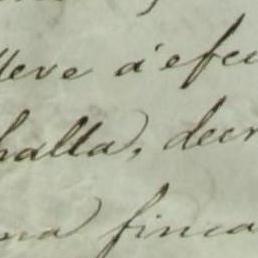 lleve á efec
halla, decr
na finca